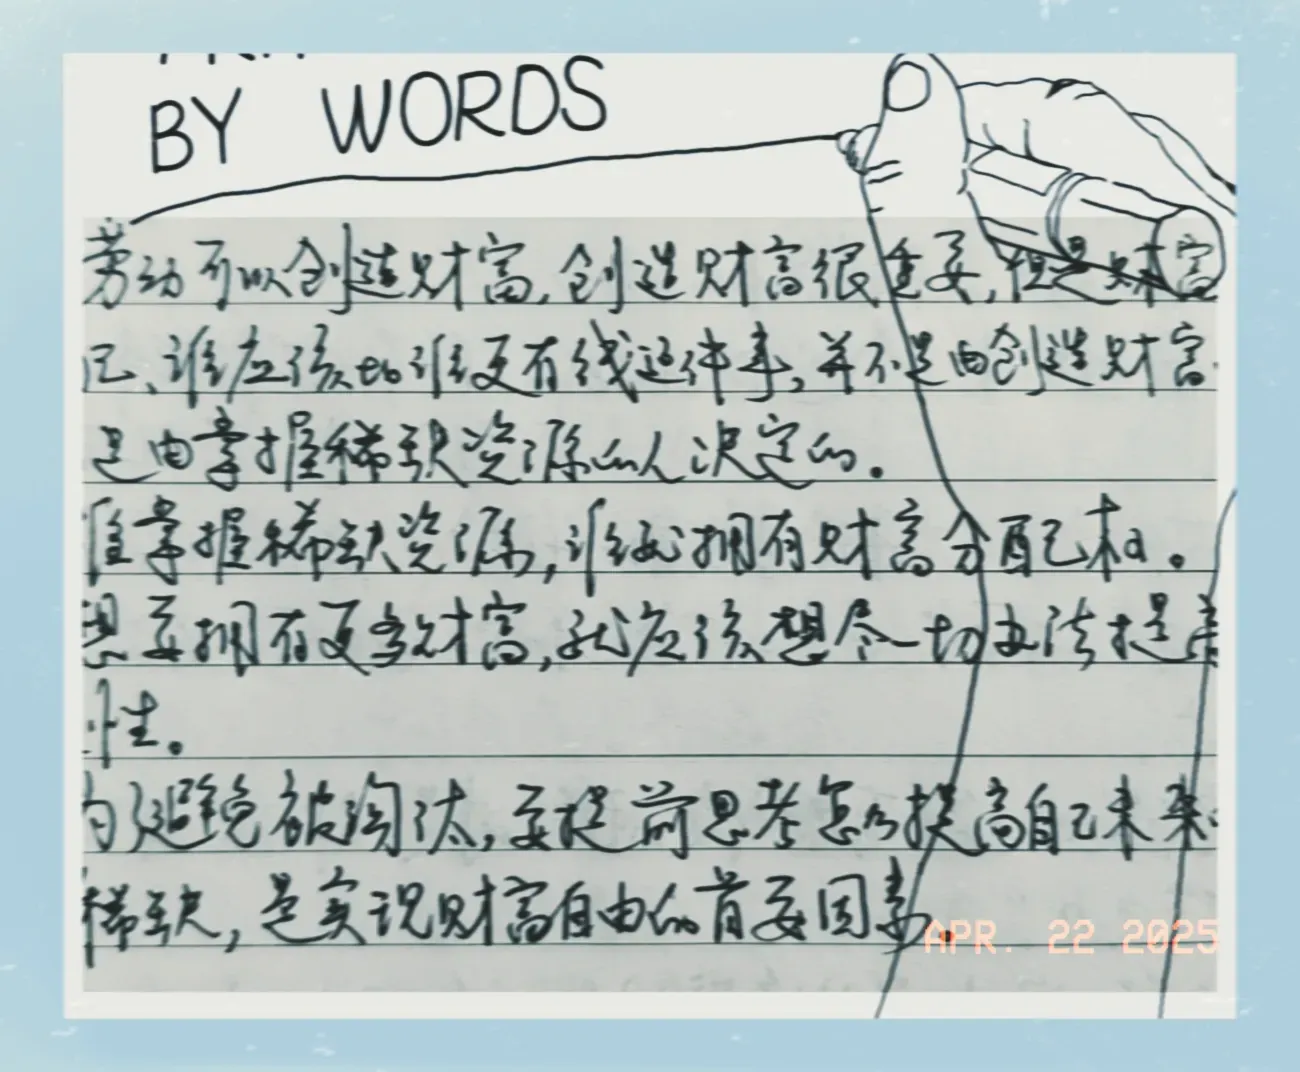 BY WORDS
劳动可以创造财富,创造财富很重要,但是财富
已、谁应该比谁更有钱这件事,并不是由创造财富
是由掌握稀缺资源的人决定的。
谁掌握稀缺资源,谁就拥有财富分配权。
想要拥有更多财富,就应该想尽一切办法提高
性。
为了避免被淘汰,要提前思考怎么提高自己未来
稀缺,是实现财富自由的首要因素.
APR. 22 2025